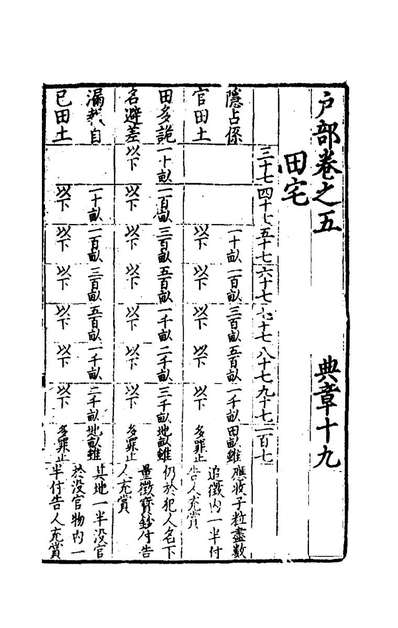 戶部卷之五 典章十九
田宅
三十七 四十七 五十七 六十七 七十七 八十七 九十七 一百七
隱占係 一十畝 一百畝 三百畝 五百畝 一千畝 田畝雖 應收子粒盡數
官田土 以下 以下 以下 以下 以下 多罪止 追徵内一半付
告人充賞
田多詭 一十畝 一百畝 三百畝 五百畝 一千畝 二千畝 三千畝 地畝雖 仍於犯人名下
名避差 以下 以下 以下 以下 以下 以下 以下 多罪止 量徵寶鈔付告
人充賞
漏報自 一十畝 一百畝 三百畝 五百畝 一千畝 二千畝 地畝雖 其地一半没官
已田土 以下 以下 以下 以下 以下 以下 多罪止 於没官物内一
半付告人充賞